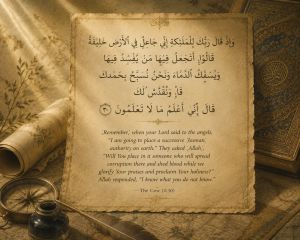 وَإِذْ قَالَ رَبُّكَ لِلْمَلَٰٓئِكَةِ إِنِّي جَاعِلٌ فِي ٱلْأَرْضِ خَلِيفَةً
قَالُوٓا۟ أَتَجْعَلُ فِيهَا مَن يُفْسِدُ فِيهَا
وَيَسْفِكُ ٱلدِّمَآءَ وَنَحْنُ نُسَبِّحُ بِحَمْدِكَ
وَنُقَدِّسُ لَكَ
قَالَ إِنِّيٓ أَعْلَمُ مَا لَا تَعْلَمُونَ ٣٠
"Remember, when your Lord said to the angels,
"I am going to place a successive
authority on earth." They asked Allah,
"Will You place in it someone who will spread
corruption there and shed blood while we
glorify Your praises and proclaim Your holiness?"
Allah responded, "I know what you do not know."
The Cow